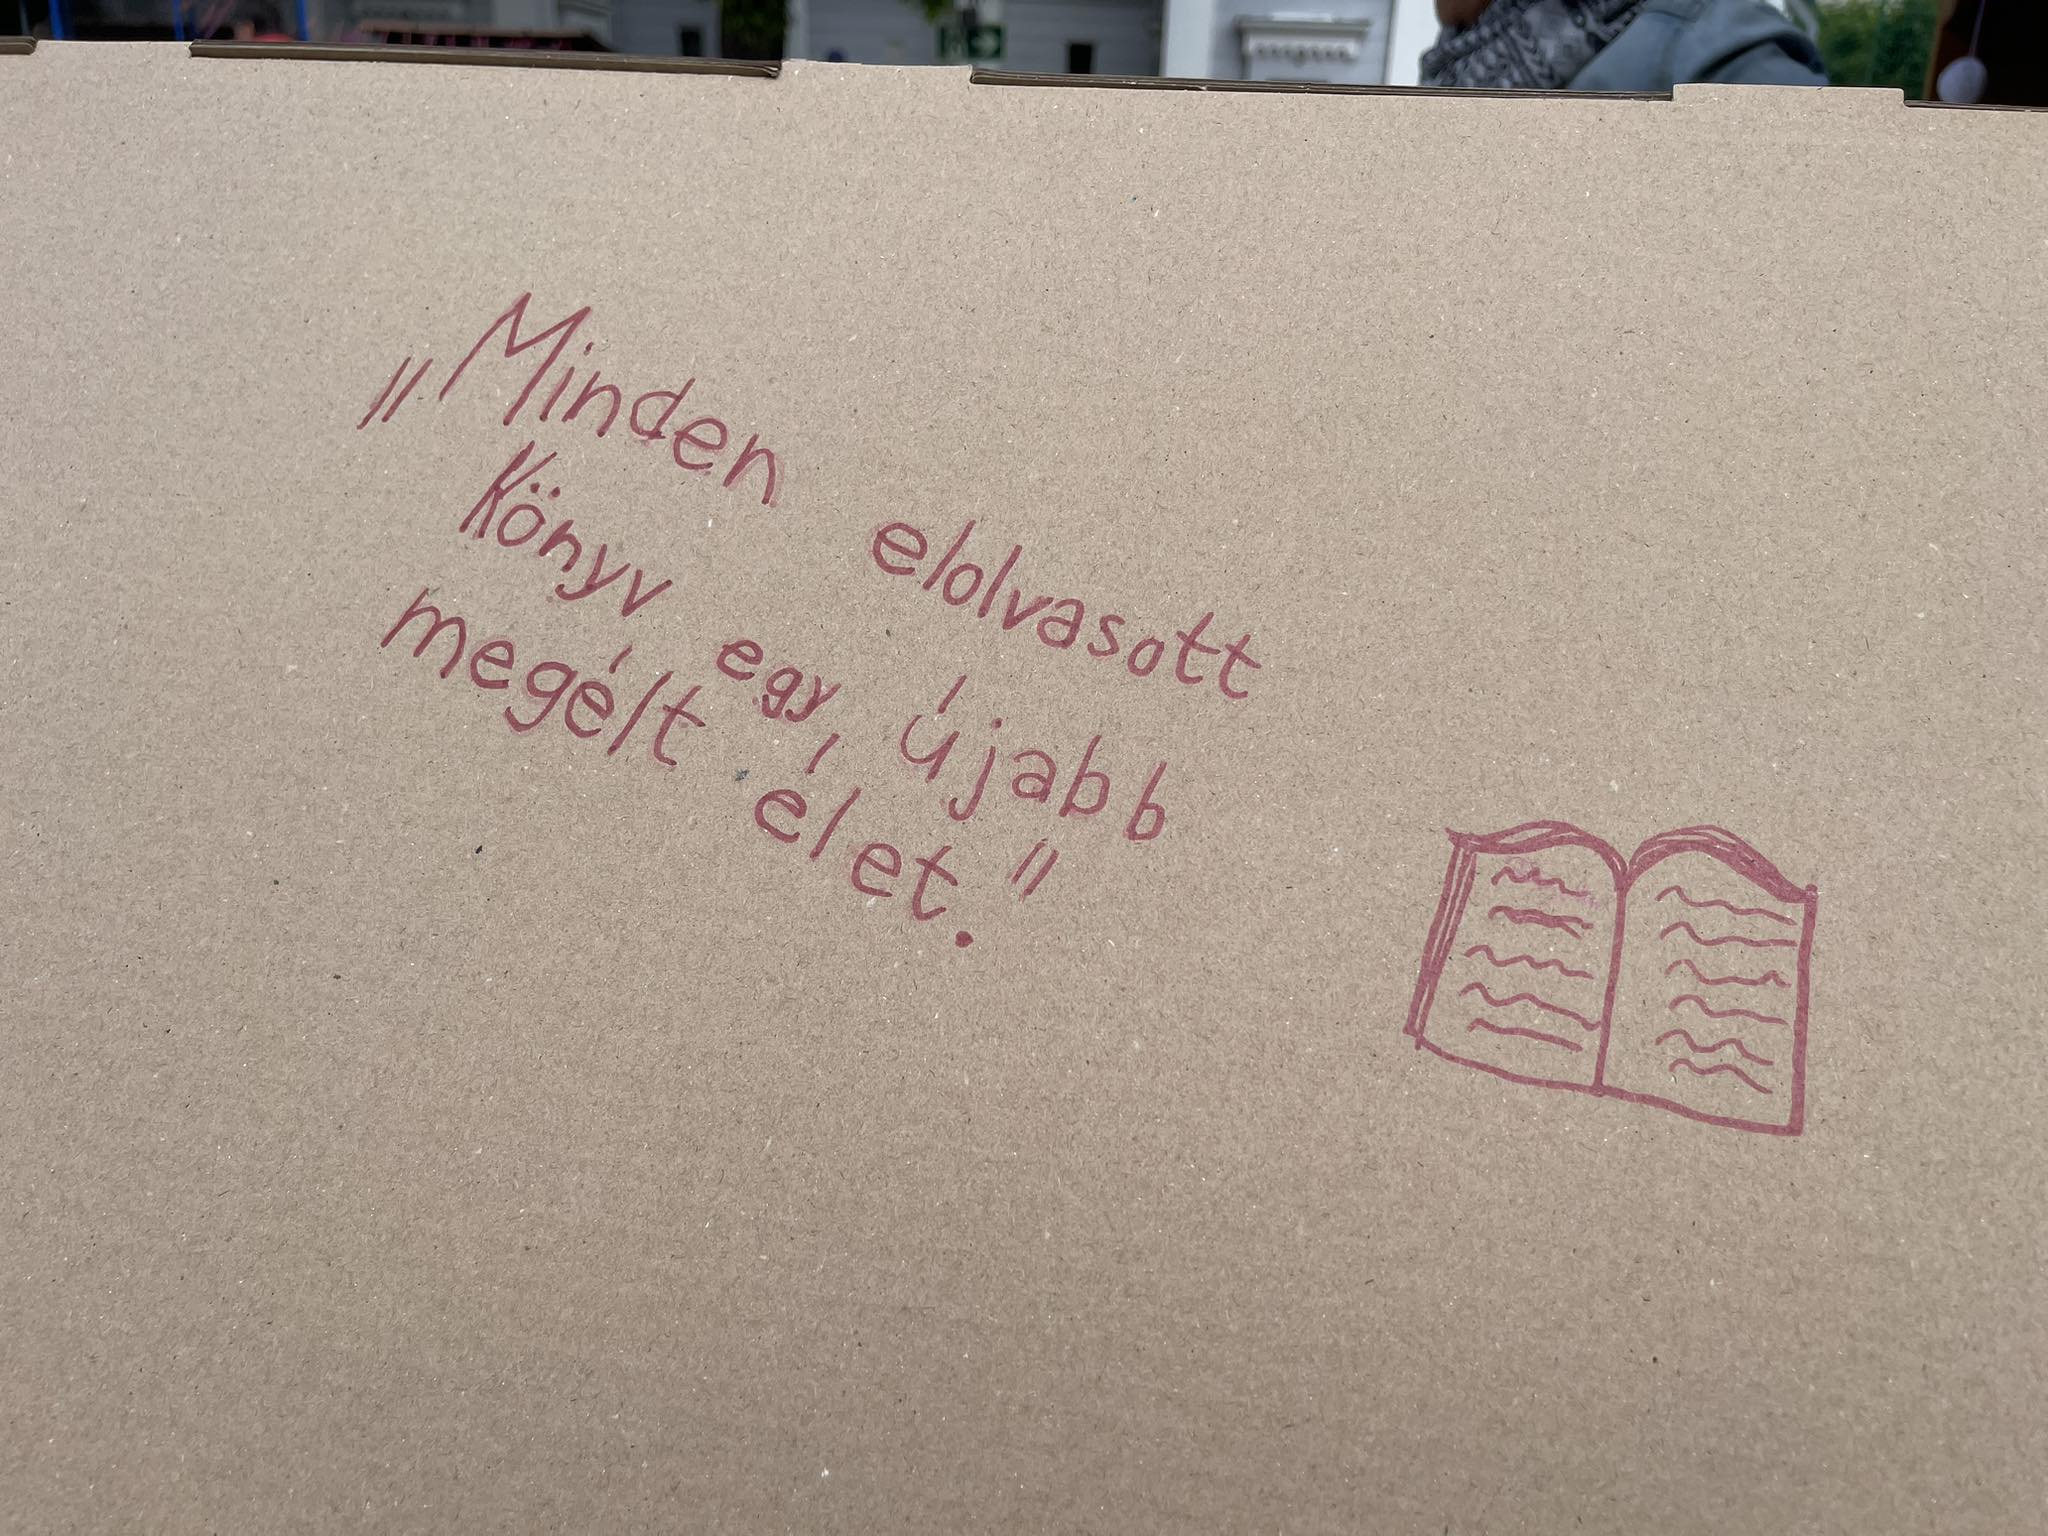 „Minden elolvasott
könyv egy újabb
megélt élet."